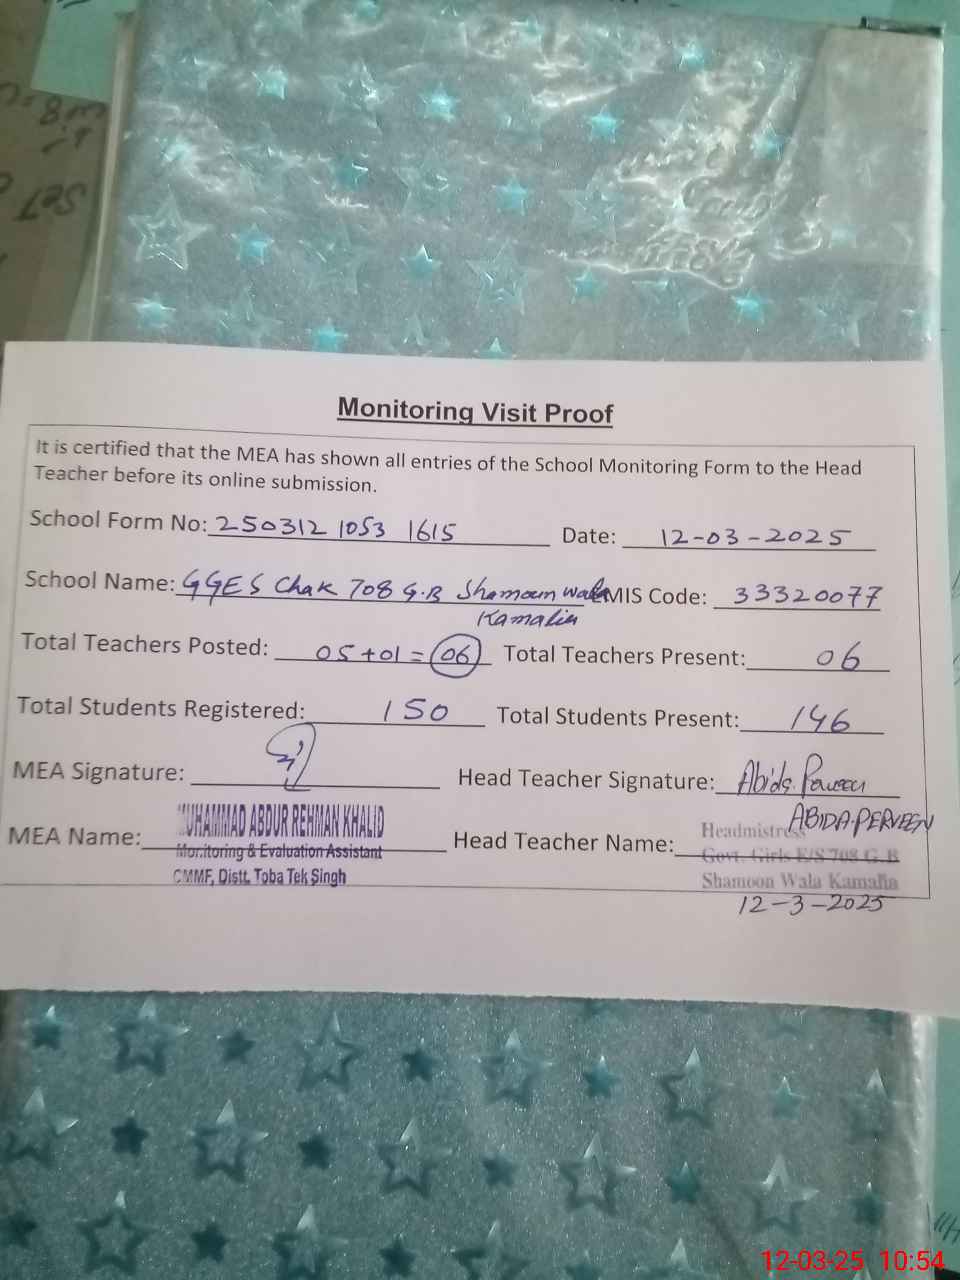 Monitoring Visit Proof
It is certified that the MEA has shown all entries of the School Monitoring Form to the Head
Teacher before its online submission.
School Form No: 250312 1053 1615 Date: 12-03-2025
School Name: GGES Chak 708 G.B Shamoun Wala EMIS Code: 33320077
Kamalia
Total Teachers Posted: 05+01=06 Total Teachers Present: 06
Total Students Registered: 150 Total Students Present: 146
MEA Signature: Head Teacher Signature: Abida Perveen
MEA Name: MUHAMMAD ABDUR REHMAN KHALID Head Teacher Name: ABIDA.PERVEEN
Monitoring & Evaluation Assistant
CMMF, Distt. Toba Tek Singh
Headmistress
Govt. Girls E/S 708 G.B
Shamoon Wala Kamalia
12-3-2025
12-03-25 10:54